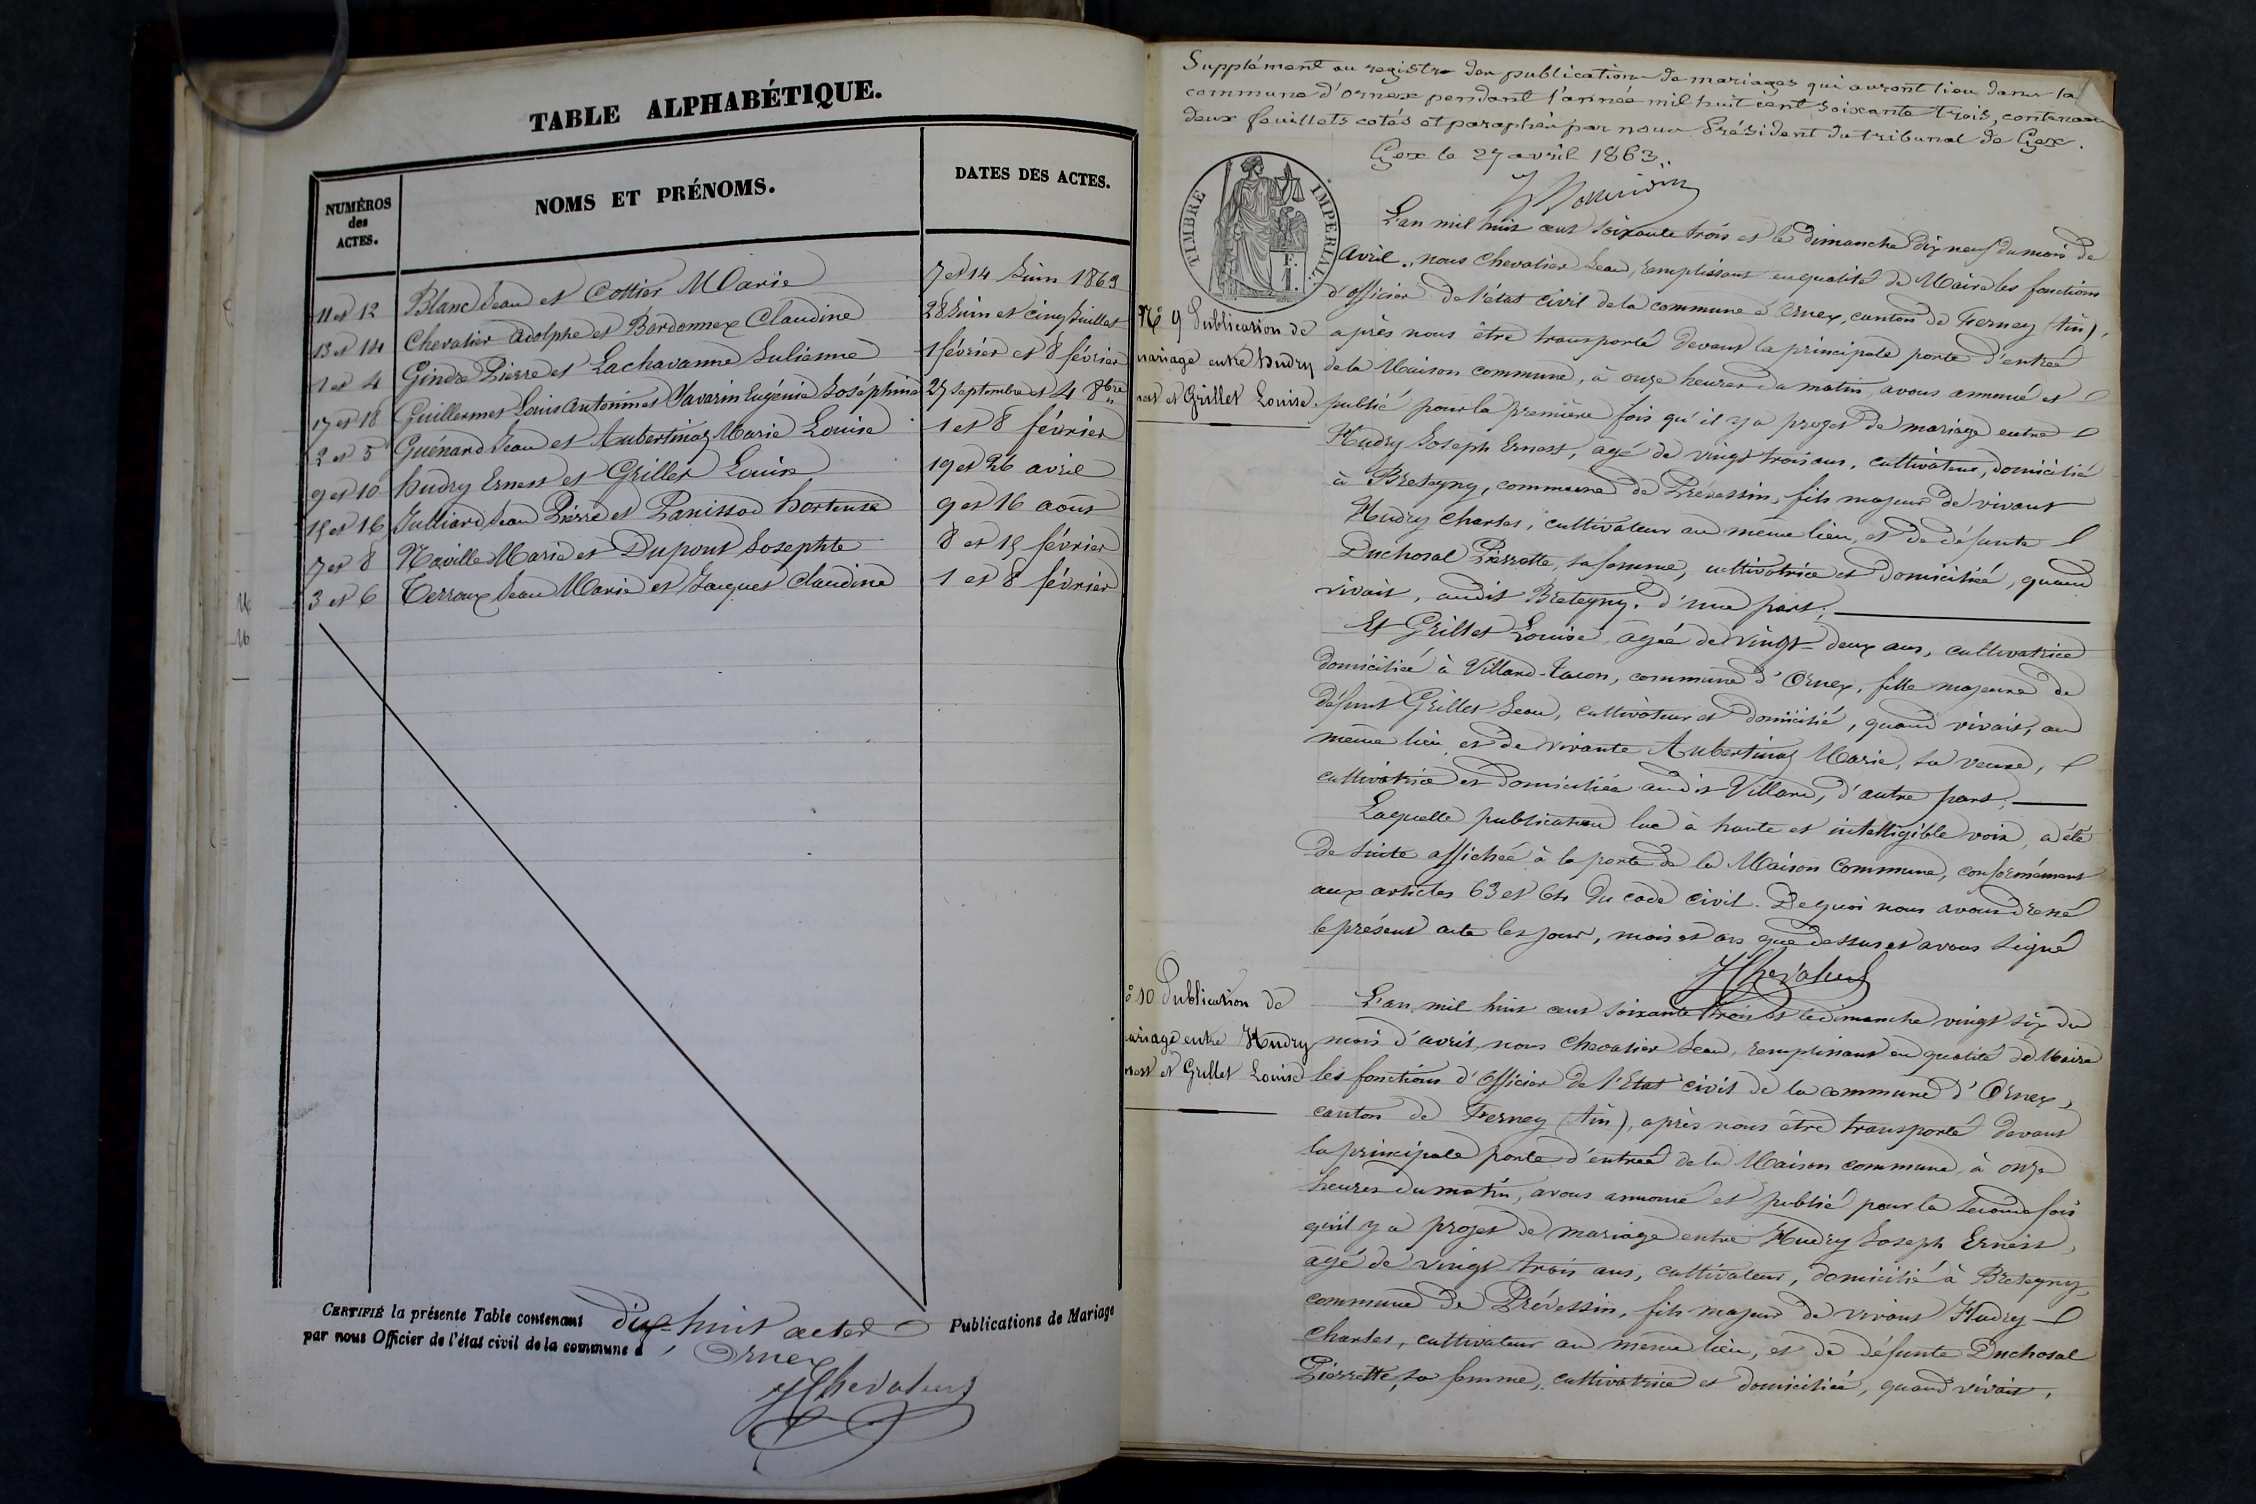 TABLE ALPHABÉTIQUE.
NUMÉROS des ACTES.
NOMS ET PRÉNOMS.
DATES DES ACTES.
11 et 12 Blanc Jean et Cottier Marie 7 et 14 Juin 1863
13 et 14 Chevalier Adolphe et Bardonnex Claudine 28 Juin et cinq Juillet
1 et 4 Gindre Pierre et Lachavanne Julienne 1 février et 8 février
17 et 18 Guillermet Louis Antoine et Savarin Eugénie Joséphine 27 septembre et 4 8bre
2 et 5 Guénard Jean et Aubertinaz Marie Louise 1 et 8 février
9 et 10 hudry Ernest et Grillet Louise 19 et 26 avril
15 et 16 Julliard Jean Pierre et Panissod hortense 9 et 16 août
7 et 8 Naville Marie et Dupont Josephte 8 et 15 février
3 et 6 Terroux Jean Marie et Jacquet Claudine 1 et 8 février
CERTIFIÉ la présente Table contenant dix-huit actes Publications de Mariage
par nous Officier de l'état civil de la commune d'Ornex
J Chevalier
Supplément au registre des publications de mariages qui auront lieu dans la
commune d'ornex pendant l'année mil huit cent soixante trois, contenant
deux feuillets cotés et paraphés par nous Président du tribunal de Gex.
Gex le 27 avril 1863.
TIMBRE IMPÉRIAL.
L'an mil huit cent soixante trois et le dimanche dix neuf du mois de
avril, nous Chevalier Jean, remplissant en qualité de Maire les fonctions
d'officier de l'état civil de la commune d'Ornex, canton de Ferney (Ain),
No 9 Publication de
mariage entre hudry
nest et Grillet Louise.
après nous être transporté devant la principale porte d'entrée
de la Maison commune, à onze heures du matin, avons annoncé et
publié pour la première fois qu'il y a projet de mariage entre
Hudry Joseph Ernest, agé de vingt trois ans, cultivateur, domicilié
à Bretegny, commune de Prévessin, fils majeur de vivant
Hudry Charles, cultivateur au même lieu, et de défunte
Duchosal Pierrette, sa femme, cultivatrice et domiciliée, quand
vivait, audit Bretegny, d'une part;
Et Grillet Louise, agée de vingt-deux ans, cultivatrice
domiciliée à Villard-Tacon, commune d'Ornex, fille majeure de
défunt Grillet Jean, cultivateur et domicilié, quand vivait, au
même lieu et de vivante Aubertinaz Marie, sa veuve,
cultivatrice et domiciliée audit Villard, d'autre part;
Laquelle publication lue à haute et intelligible voix, a été
de suite affichée à la porte de la Maison Commune, conformément
aux articles 63 et 64 du code civil. De quoi nous avons dressé
le présent acte les jour, mois et an que dessus et avons signé
J Chevalier
o 10 Publication de
ariage entre Hudry
nest et Grillet Louise
L'an mil huit cent soixante trois et le dimanche vingt six du
mois d'avril, nous Chevalier Jean, remplissant en qualité de Maire
les fonctions d'Officier de l'Etat civil de la commune d'Ornex,
canton de Ferney (Ain), après nous être transporté devant
la principale porte d'entrée de la Maison commune, à onze
heures du matin, avons annoncé et publié pour la seconde fois
qu'il y a projet de mariage entre Hudry Joseph Ernest,
agé de vingt trois ans, cultivateur, domicilié à Bretegny
commune de Prévessin, fils majeur de vivant Hudry
Charles, cultivateur au même lieu, et de défunte Duchosal
Pierrette, sa femme, cultivatrice et domiciliée, quand vivait,